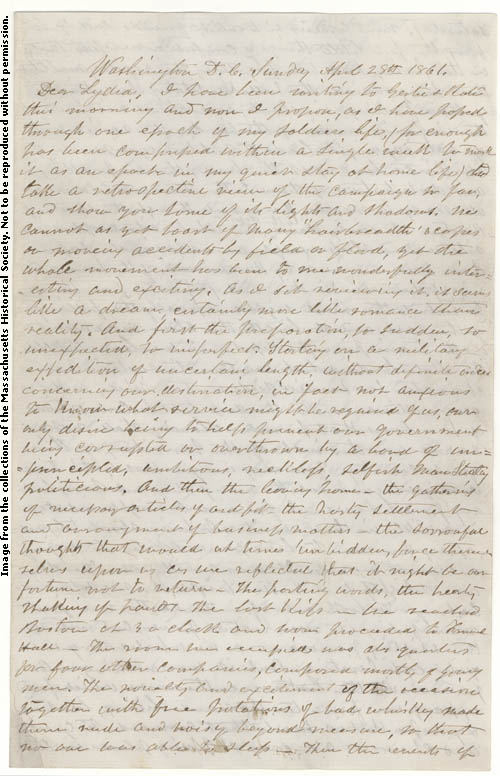 Image from the collections of the Massachusetts Historical Society. Not to be reproduced without permission.
Washington D. C. Sunday April 28th 1861.
Dear Lydia, I have been writing to Gertie &
this morning and now I propose, as I have passed
through one epoch of my soldiers life, (for enough
has been comprised within a single week to mark
it as an epoch in my quiet stay at home life) to
take a retrospective view of the campaign so far,
and show you some of its lights and shadows. We
cannot as yet boast of many hairbreadth 'scapes
or moving accidents by field or flood, yet the
whole movement has been to me wonderfully inter-
-esting and exciting. As I sit reviewing it, it seems
like a dream, certainly more like romance than
reality. And first the preparation, so sudden, so
unexpected, so imperfect. Starting on a military
expedition of uncertain length, without definite orders
concerning our destination, in fact not anxious
to know what service might be required of us, our
only desire being to help prevent our government
being corrupted or overthrown by a band of un=
=principled, ambitious, reckless, selfish
politicians. And then the leaving home - the gathering
of necessary articles of outfit the hasty settlement
and arrangement of business matters - the sorrowful
thoughts that would at times unbidden, force them
selves upon us as we reflected that it might be our
fortune not to return - The parting words, the hearty
shaking of hands the last kiss - We reached
Boston at 3 o clock and were proceeded to Faneuil
Hall - The room we occupied was also quarters
for four other companies, composed mostly of young
men. The novelty and excitement of the occasion
together with free potations of bad whiskey made
them rude and noisy beyond measure, so that
no one was able to sleep - Then the events of